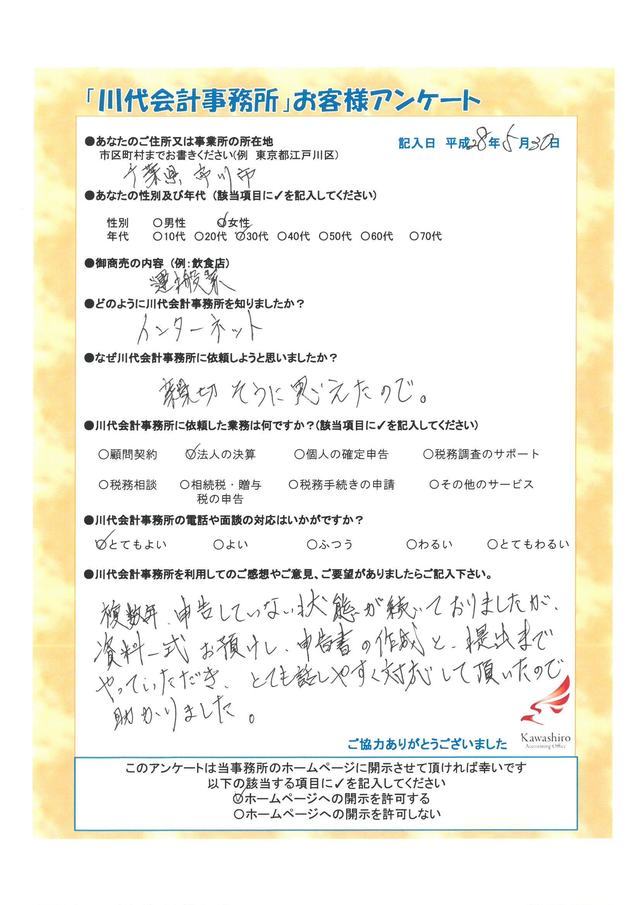 「川代会計事務所」お客様アンケート
●あなたのご住所又は事業所の所在地
記入日 平成28年5月30日
市区町村までお書きください(例 東京都江戸川区)
千葉県市川市
●あなたの性別及び年代 (該当項目に✓を記入してください)
性別 ○男性 ✓○女性
年代 ○10代 ○20代 ✓○30代 ○40代 ○50代 ○60代 ○70代
●御商売の内容 (例:飲食店)
運搬業
●どのように川代会計事務所を知りましたか?
インターネット
●なぜ川代会計事務所に依頼しようと思いましたか?
親切そうに思えたので。
●川代会計事務所に依頼した業務は何ですか?(該当項目に✓を記入してください)
○顧問契約 ✓○法人の決算 ○個人の確定申告 ○税務調査のサポート
○税務相談 ○相続税・贈与 ○税務手続きの申請 ○その他のサービス
税の申告
●川代会計事務所の電話や面談の対応はいかがですか?
✓○とてもよい ○よい ○ふつう ○わるい ○とてもわるい
●川代会計事務所を利用してのご感想やご意見、ご要望がありましたらご記入下さい。
複数年、申告していない状態が続いておりましたが、
資料一式お預けし、申告書の作成と、提出まで
やっていただき、とても話しやすく対応して頂いたので
助かりました。
Kawashiro
Accounting Office
ご協力ありがとうございました
このアンケートは当事務所のホームページに開示させて頂ければ幸いです
以下の該当する項目に✓を記入してください
✓○ホームページへの開示を許可する
○ホームページへの開示を許可しない